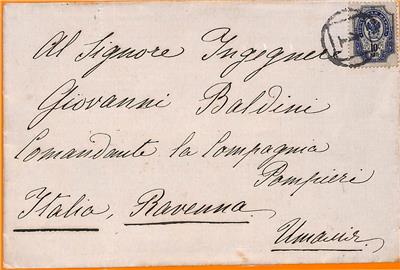 Al Signore Ingegner
Giovanni Baldini
Comandante la Compagnia
Pompieri
Italia, Ravenna
Италія.
10